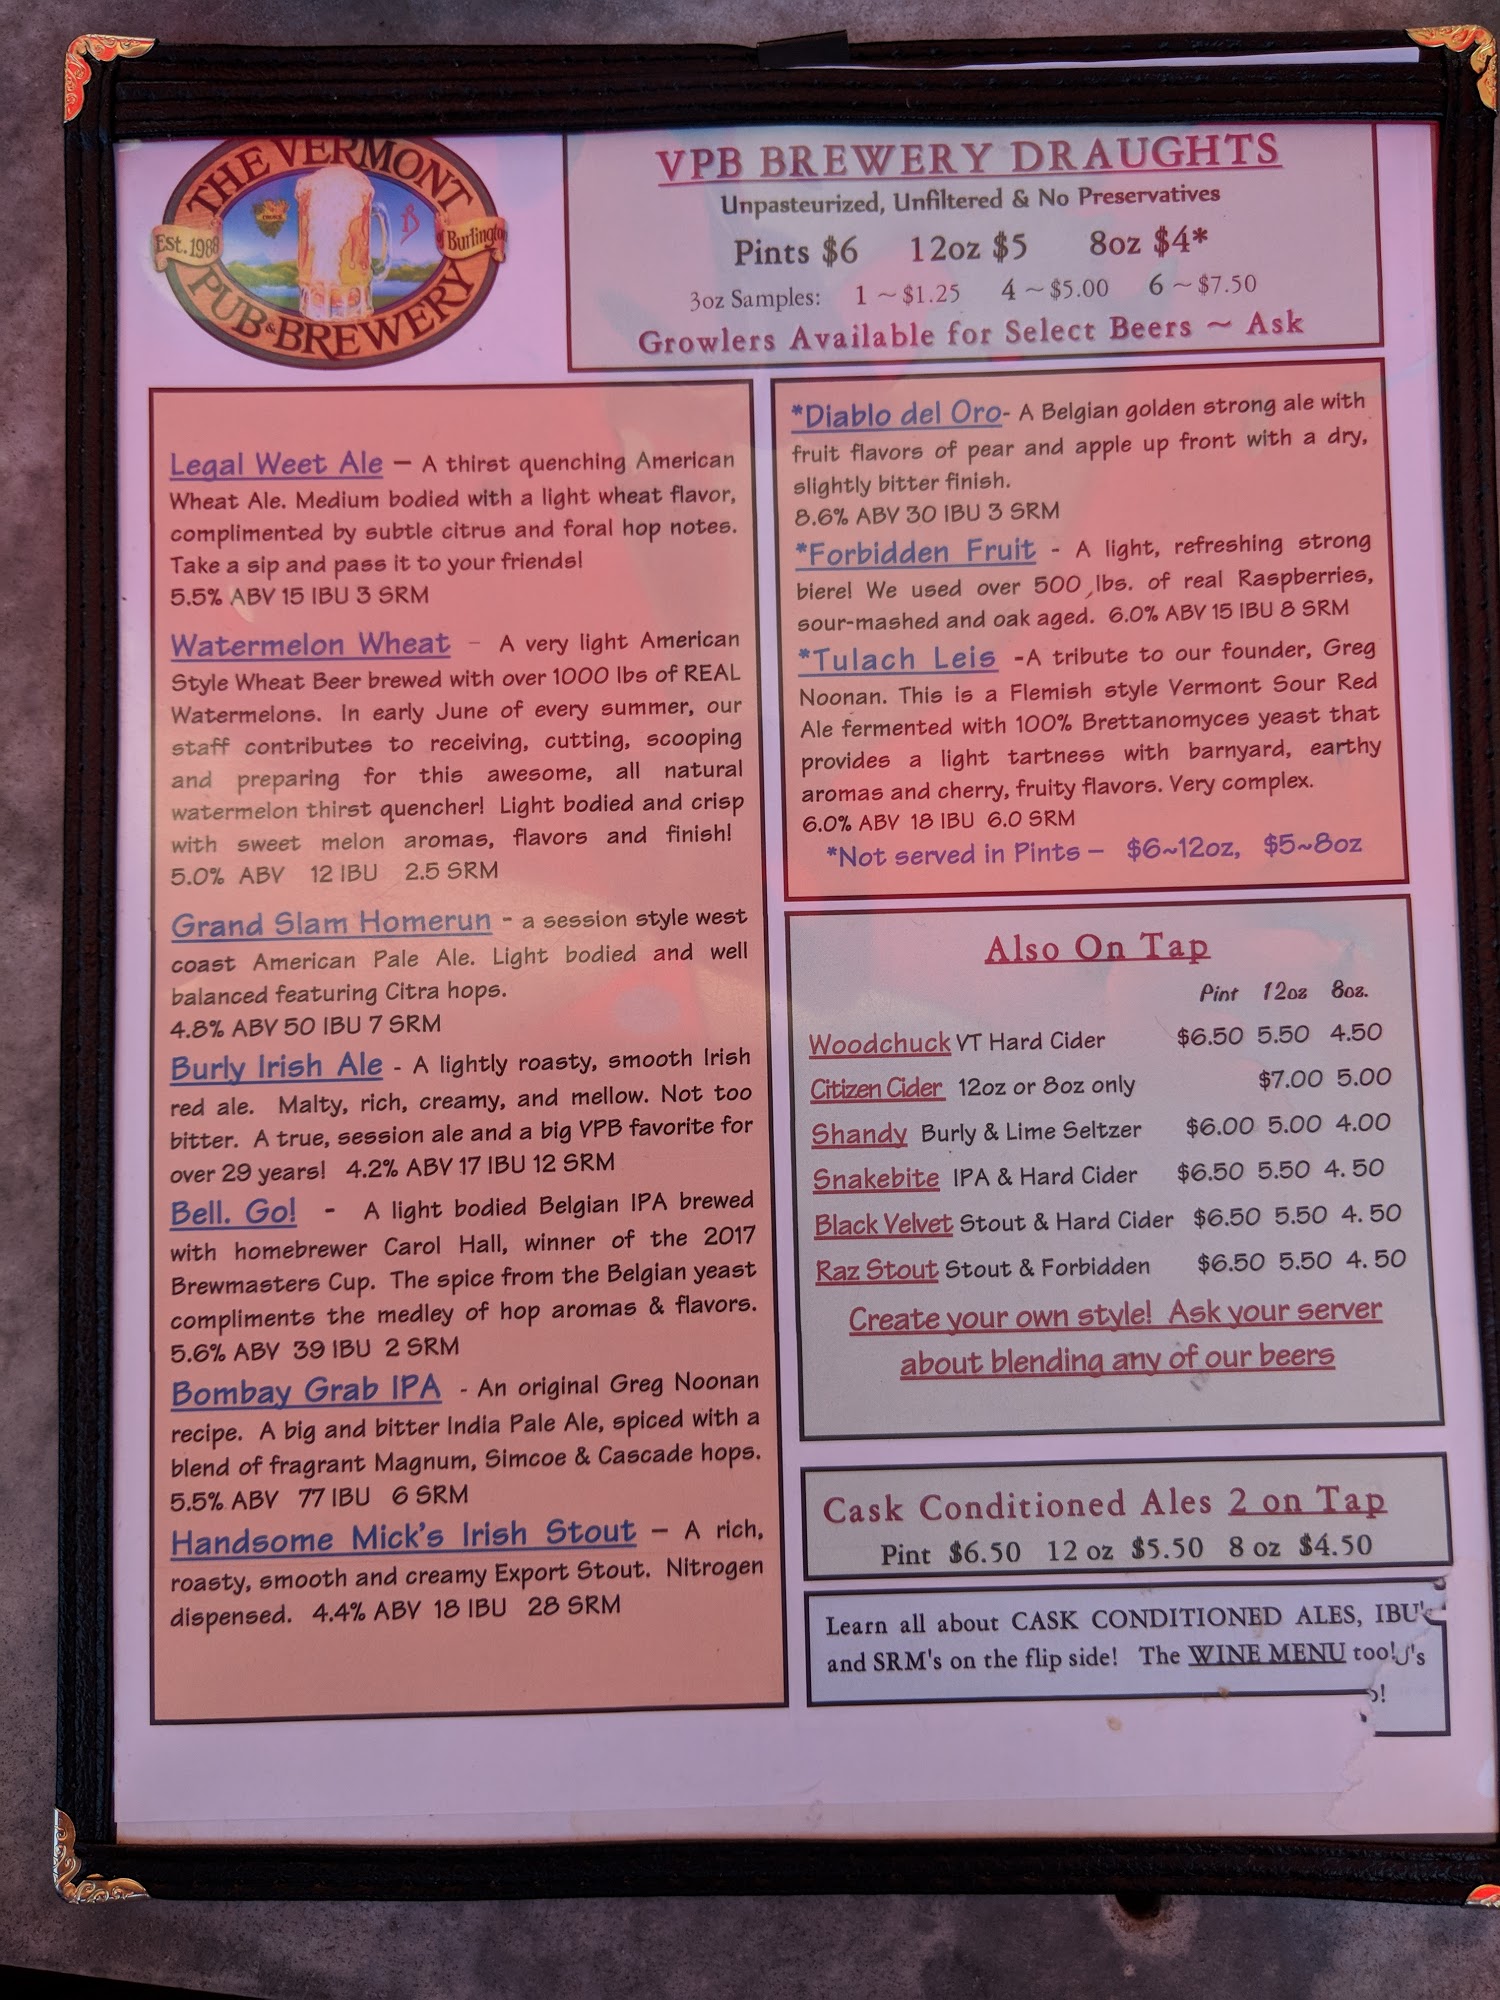 THE VERMONT
Est. 1988
Burlington
PUB & BREWERY
VPB BREWERY DRAUGHTS
Unpasteurized, Unfiltered & No Preservatives
Pints $6 12oz $5 8oz $4*
3oz Samples: 1 ~ $1.25 4 ~ $5.00 6 ~ $7.50
Growlers Available for Select Beers ~ Ask
Legal Weet Ale – A thirst quenching American
Wheat Ale. Medium bodied with a light wheat flavor,
complimented by subtle citrus and foral hop notes.
Take a sip and pass it to your friends!
5.5% ABV 15 IBU 3 SRM
Watermelon Wheat – A very light American
Style Wheat Beer brewed with over 1000 lbs of REAL
Watermelons. In early June of every summer, our
staff contributes to receiving, cutting, scooping
and preparing for this awesome, all natural
watermelon thirst quencher! Light bodied and crisp
with sweet melon aromas, flavors and finish!
5.0% ABV 12 IBU 2.5 SRM
Grand Slam Homerun - a session style west
coast American Pale Ale. Light bodied and well
balanced featuring Citra hops.
4.8% ABV 50 IBU 7 SRM
Burly Irish Ale - A lightly roasty, smooth Irish
red ale. Malty, rich, creamy, and mellow. Not too
bitter. A true, session ale and a big VPB favorite for
over 29 years! 4.2% ABV 17 IBU 12 SRM
Bell. Go! - A light bodied Belgian IPA brewed
with homebrewer Carol Hall, winner of the 2017
Brewmasters Cup. The spice from the Belgian yeast
compliments the medley of hop aromas & flavors.
5.6% ABV 39 IBU 2 SRM
Bombay Grab IPA - An original Greg Noonan
recipe. A big and bitter India Pale Ale, spiced with a
blend of fragrant Magnum, Simcoe & Cascade hops.
5.5% ABV 77 IBU 6 SRM
Handsome Mick's Irish Stout – A rich,
roasty, smooth and creamy Export Stout. Nitrogen
dispensed. 4.4% ABV 18 IBU 28 SRM
*Diablo del Oro- A Belgian golden strong ale with
fruit flavors of pear and apple up front with a dry,
slightly bitter finish.
8.6% ABV 30 IBU 3 SRM
*Forbidden Fruit - A light, refreshing strong
biere! We used over 500 lbs. of real Raspberries,
sour-mashed and oak aged. 6.0% ABV 15 IBU 8 SRM
*Tulach Leis -A tribute to our founder, Greg
Noonan. This is a Flemish style Vermont Sour Red
Ale fermented with 100% Brettanomyces yeast that
provides a light tartness with barnyard, earthy
aromas and cherry, fruity flavors. Very complex.
6.0% ABV 18 IBU 6.0 SRM
*Not served in Pints – $6~12oz, $5~8oz
Also On Tap
Pint 12oz 8oz.
Woodchuck VT Hard Cider $6.50 5.50 4.50
Citizen Cider 12oz or 8oz only $7.00 5.00
Shandy Burly & Lime Seltzer $6.00 5.00 4.00
Snakebite IPA & Hard Cider $6.50 5.50 4.50
Black Velvet Stout & Hard Cider $6.50 5.50 4.50
Raz Stout Stout & Forbidden $6.50 5.50 4.50
Create your own style! Ask your server
about blending any of our beers
Cask Conditioned Ales 2 on Tap
Pint $6.50 12 oz $5.50 8 oz $4.50
Learn all about CASK CONDITIONED ALES, IBU's
and SRM's on the flip side! The WINE MENU too!